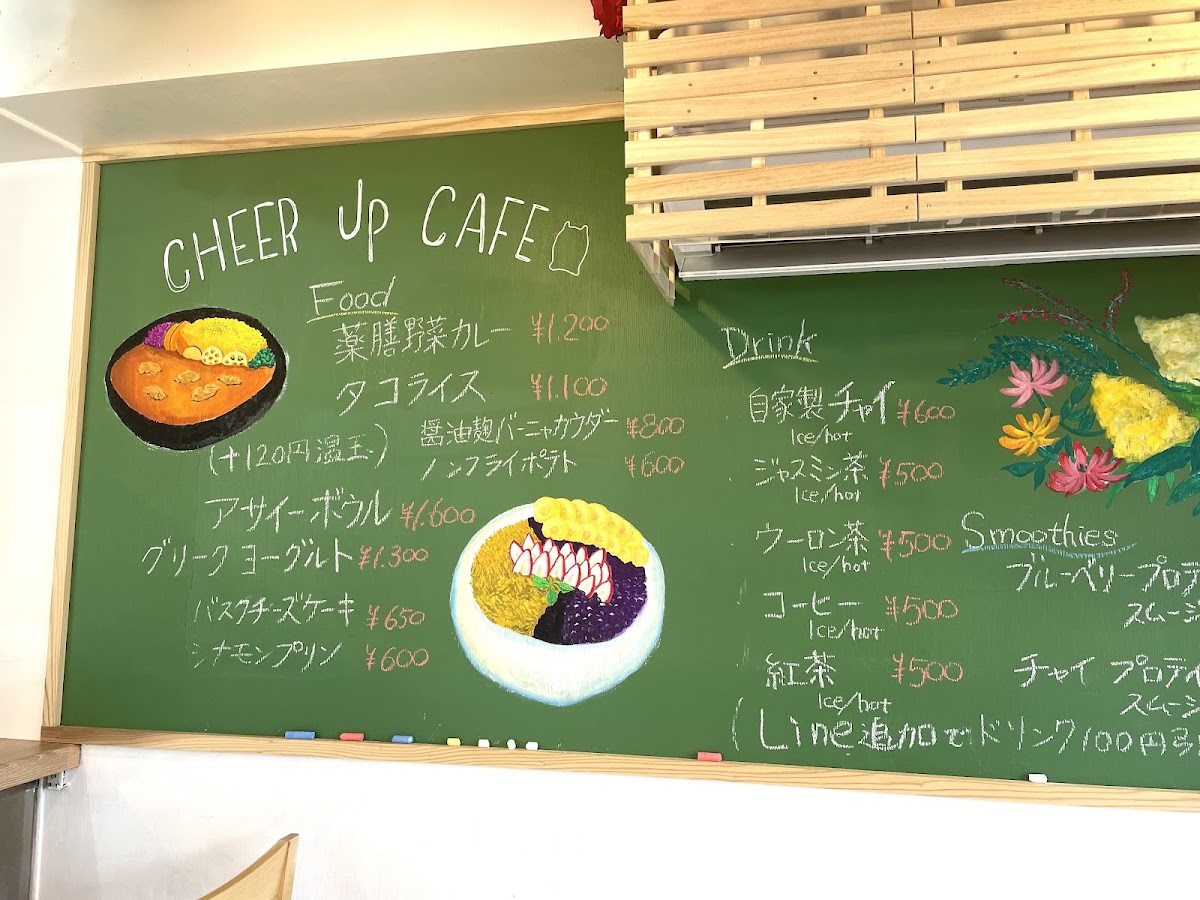 CHEER UP CAFE
Food
薬膳野菜カレー ¥1.200
タコライス ¥1.100
(+120円温玉)
醤油麹バーニャカウダー ¥800
ノンフライポテト ¥600
アサイーボウル ¥1.600
グリークヨーグルト ¥1.300
バスクチーズケーキ ¥650
シナモンプリン ¥600
Drink
自家製チャイ ¥600
Ice/hot
ジャスミン茶 ¥500
Ice/hot
ウーロン茶 ¥500
Ice/hot
コーヒー ¥500
Ice/hot
紅茶 ¥500
Ice/hot
(Line追加でドリンク100円引
Smoothies
ブルーベリープロテ
スムージ
チャイ プロテイ
スムージ